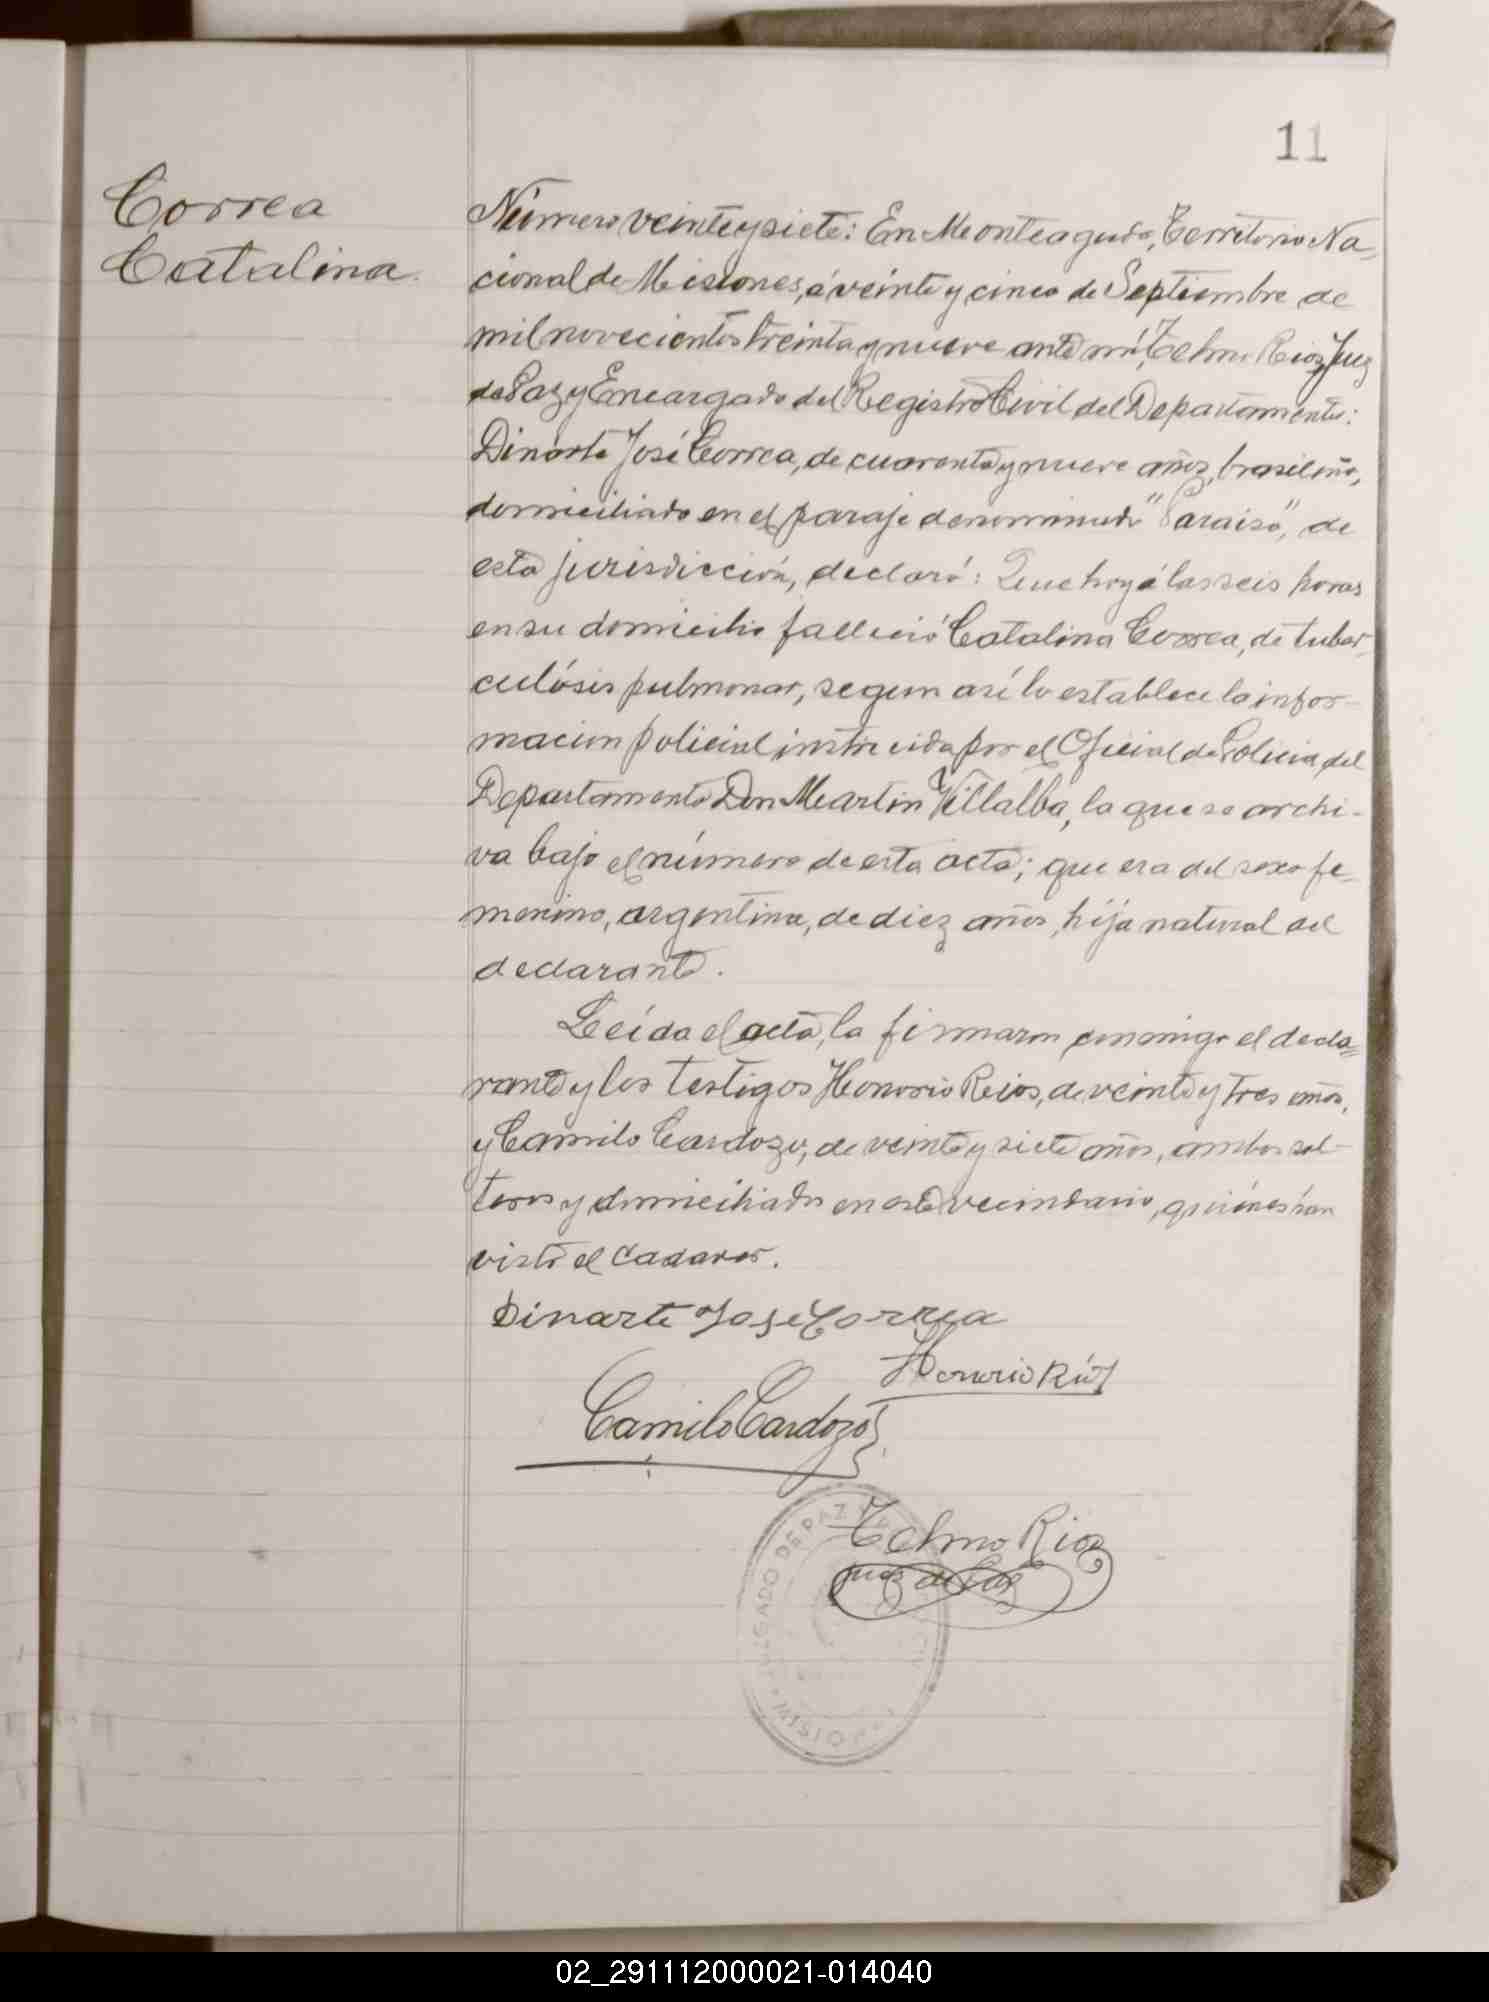 11
Correa
Catalina.
Número veinte y siete: En Monteagudo, Territorio Na-
cional de Misiones, á veinte y cinco de Septiembre de
mil novecientos treinta y nueve ante mí, Telmo Rios, Juez
de Paz y Encargado del Registro Civil del Departamento:
Dinarte José Correa, de cuarenta y nueve años, brasileño,
domiciliado en el paraje denominado "Paraiso", de
esta jurisdicción, declaró: Que hoy á las seis horas
en su domicilio falleció Catalina Correa, de tuber-
culósis pulmonar, segun así lo establece la infor-
macion policial instruida por el Oficial de Policia del
Departamento Don Martin Villalba, la que se archi-
va bajo el número de esta acta; que era del sexo fe-
menino, argentina, de diez años, hija natural del
declarante.
Leída el acta, la firmaron conmigo el decla-
rante y los testigos Honorio Rios, de veinte y tres años,
y Camilo Cardozo, de veinte y siete años, ambos sol-
teros y domiciliados en este vecindario, quiénes han
visto el cadaver.
Dinarte Jose Correa
Honorio Ríos
Camilo Cardozo
Telmo Rios
Juez de Paz
JUZGADO DE PAZ Y
02_291112000021-014040